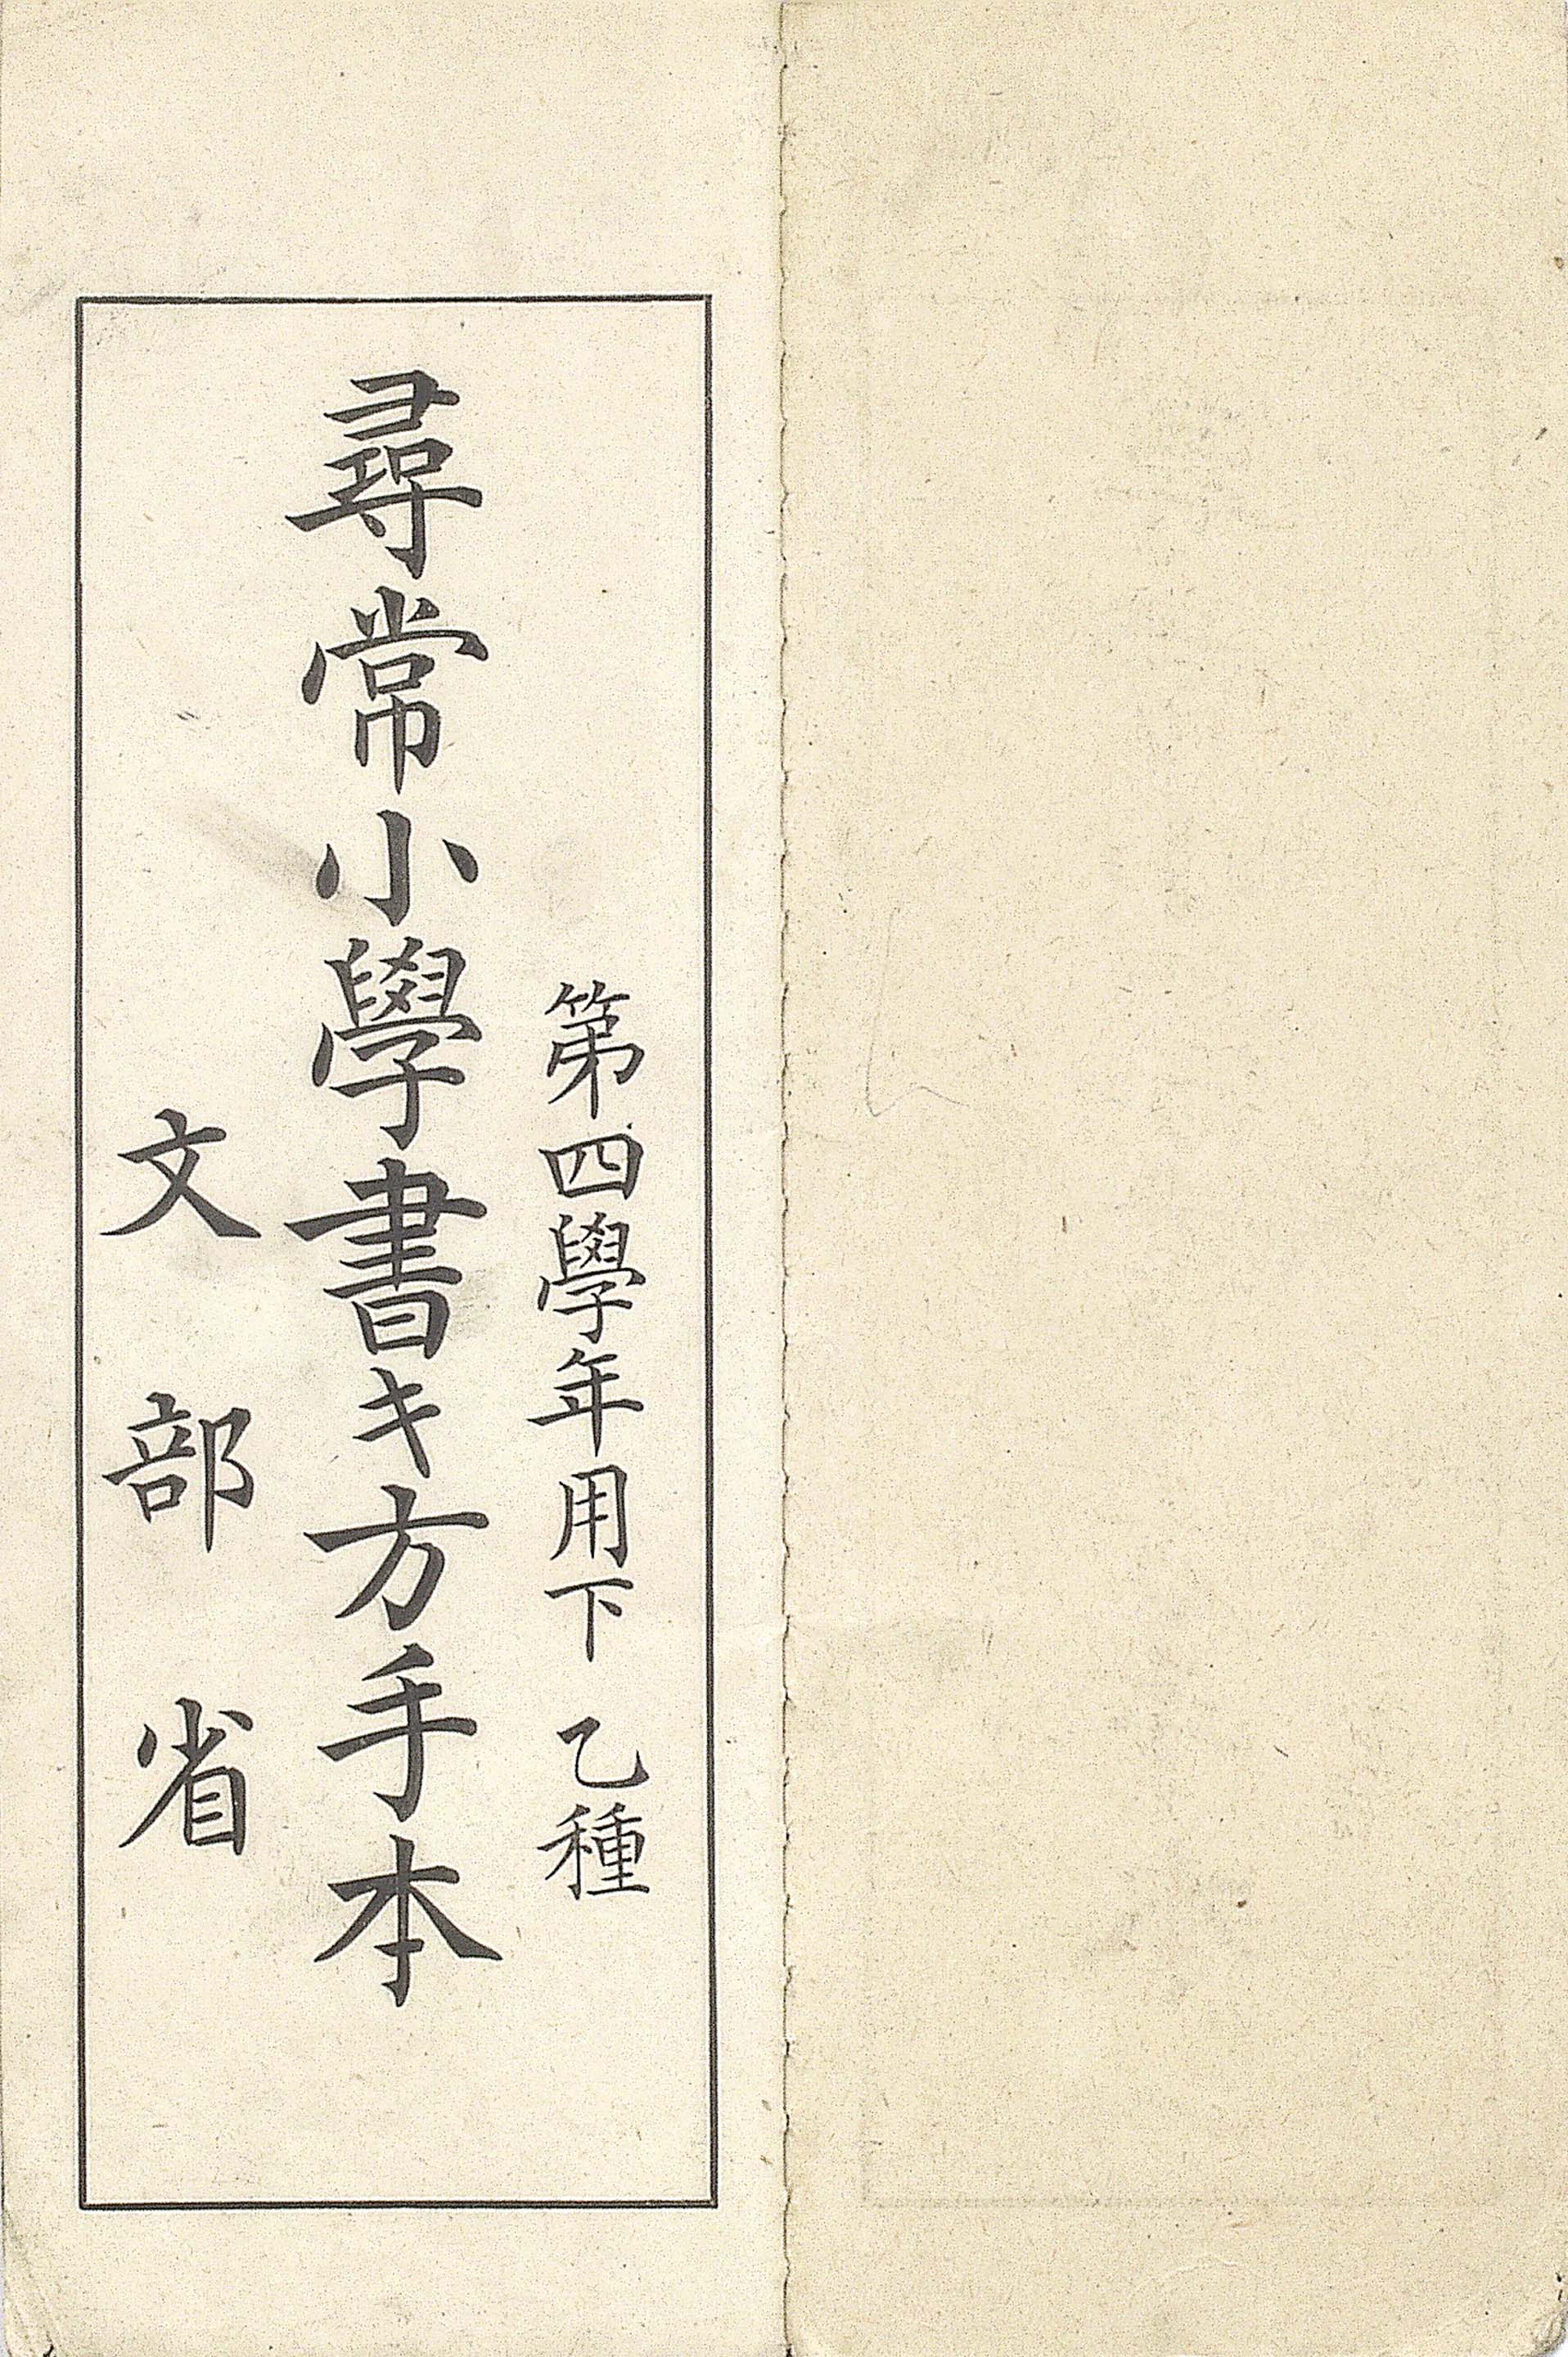 第四學年用下 乙種
尋常小學書キ方手本
文部省